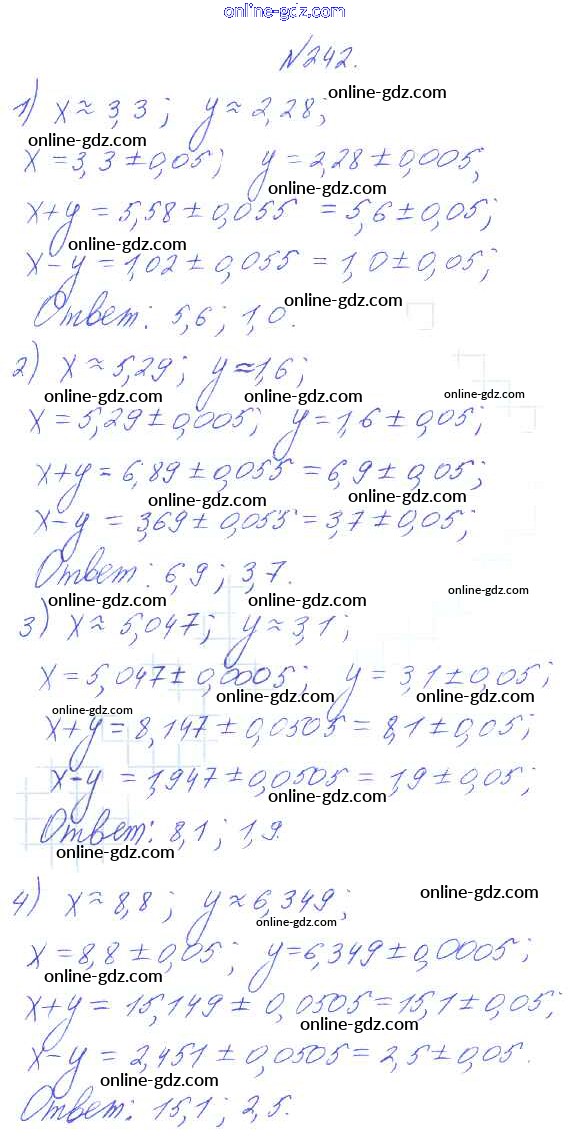 online-gdz.com
№242.
1) x ≈ 3,3; y ≈ 2,28;
online-gdz.com
online-gdz.com
x = 3,3 ± 0,05; y = 2,28 ± 0,005;
online-gdz.com
x+y = 5,58 ± 0,055 = 5,6 ± 0,05;
online-gdz.com
x-y = 1,02 ± 0,055 = 1,0 ± 0,05;
online-gdz.com
Ответ: 5,6; 1,0.
2) x ≈ 5,29; y ≈ 1,6;
online-gdz.com online-gdz.com online-gdz.com
x = 5,29 ± 0,005; y = 1,6 ± 0,05;
x+y = 6,89 ± 0,055 = 6,9 ± 0,05;
online-gdz.com online-gdz.com
x-y = 3,69 ± 0,055 = 3,7 ± 0,05;
Ответ: 6,9; 3,7.
online-gdz.com online-gdz.com online-gdz.com
3) x ≈ 5,047; y ≈ 3,1;
x = 5,047 ± 0,0005; y = 3,1 ± 0,05;
online-gdz.com online-gdz.com online-gdz.com
x+y = 8,147 ± 0,0505 = 8,1 ± 0,05;
x-y = 1,947 ± 0,0505 = 1,9 ± 0,05;
online-gdz.com
Ответ: 8,1; 1,9.
online-gdz.com
4) x ≈ 8,8; y ≈ 6,349;
online-gdz.com
online-gdz.com
x = 8,8 ± 0,05; y = 6,349 ± 0,0005;
online-gdz.com
x+y = 15,149 ± 0,0505 = 15,1 ± 0,05;
online-gdz.com
x-y = 2,451 ± 0,0505 = 2,5 ± 0,05.
online-gdz.com
Ответ: 15,1; 2,5.